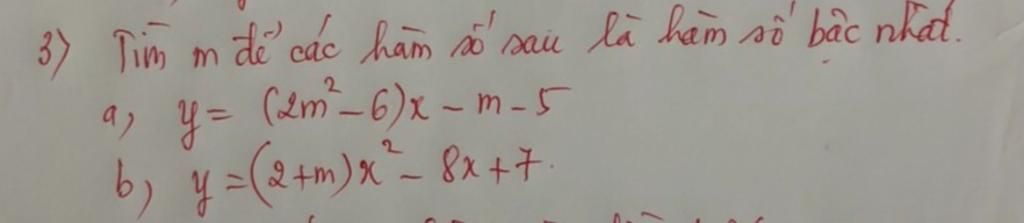 3) Tìm m để các hàm số sau là hàm số bậc nhất.
a, y = (2m² - 6)x - m - 5
b) y = (2+m)x² - 8x + 7.